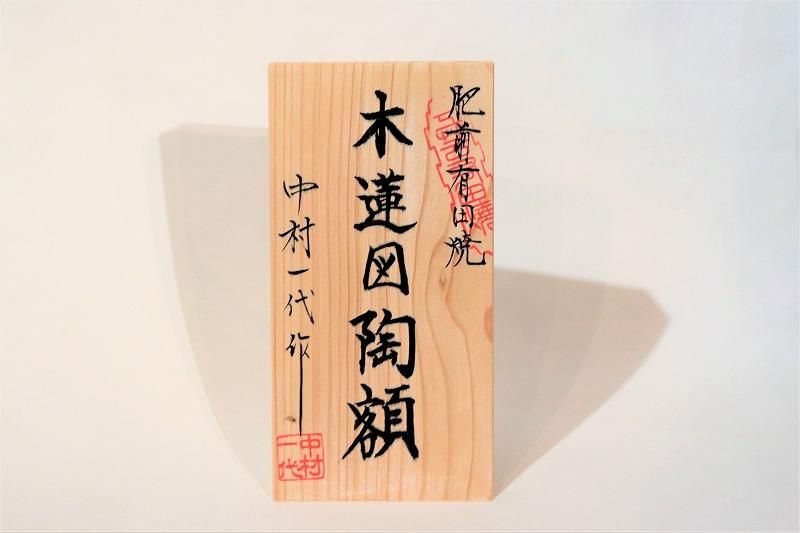 肥前有田焼
木蓮図陶額
中村一代作
中村一代